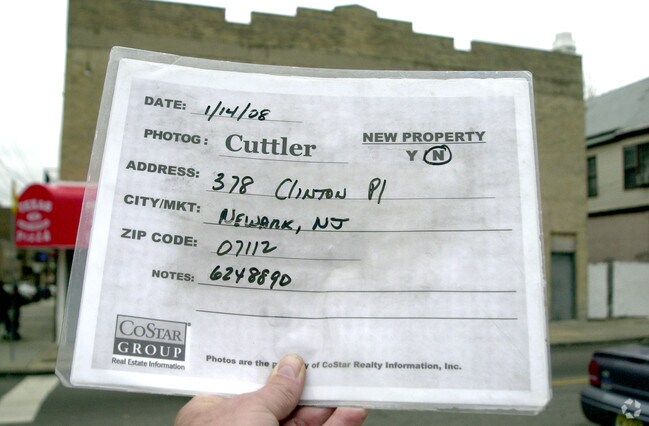 DATE: 1/14/08
PHOTOG: Cuttler
NEW PROPERTY
Y N
ADDRESS: 378 Clinton Pl
CITY/MKT: Newark, NJ
ZIP CODE: 07112
NOTES: 6248890
COSTAR
GROUP
Real Estate Information
Photos are the of CoStar Realty Information, Inc.
PIZZA